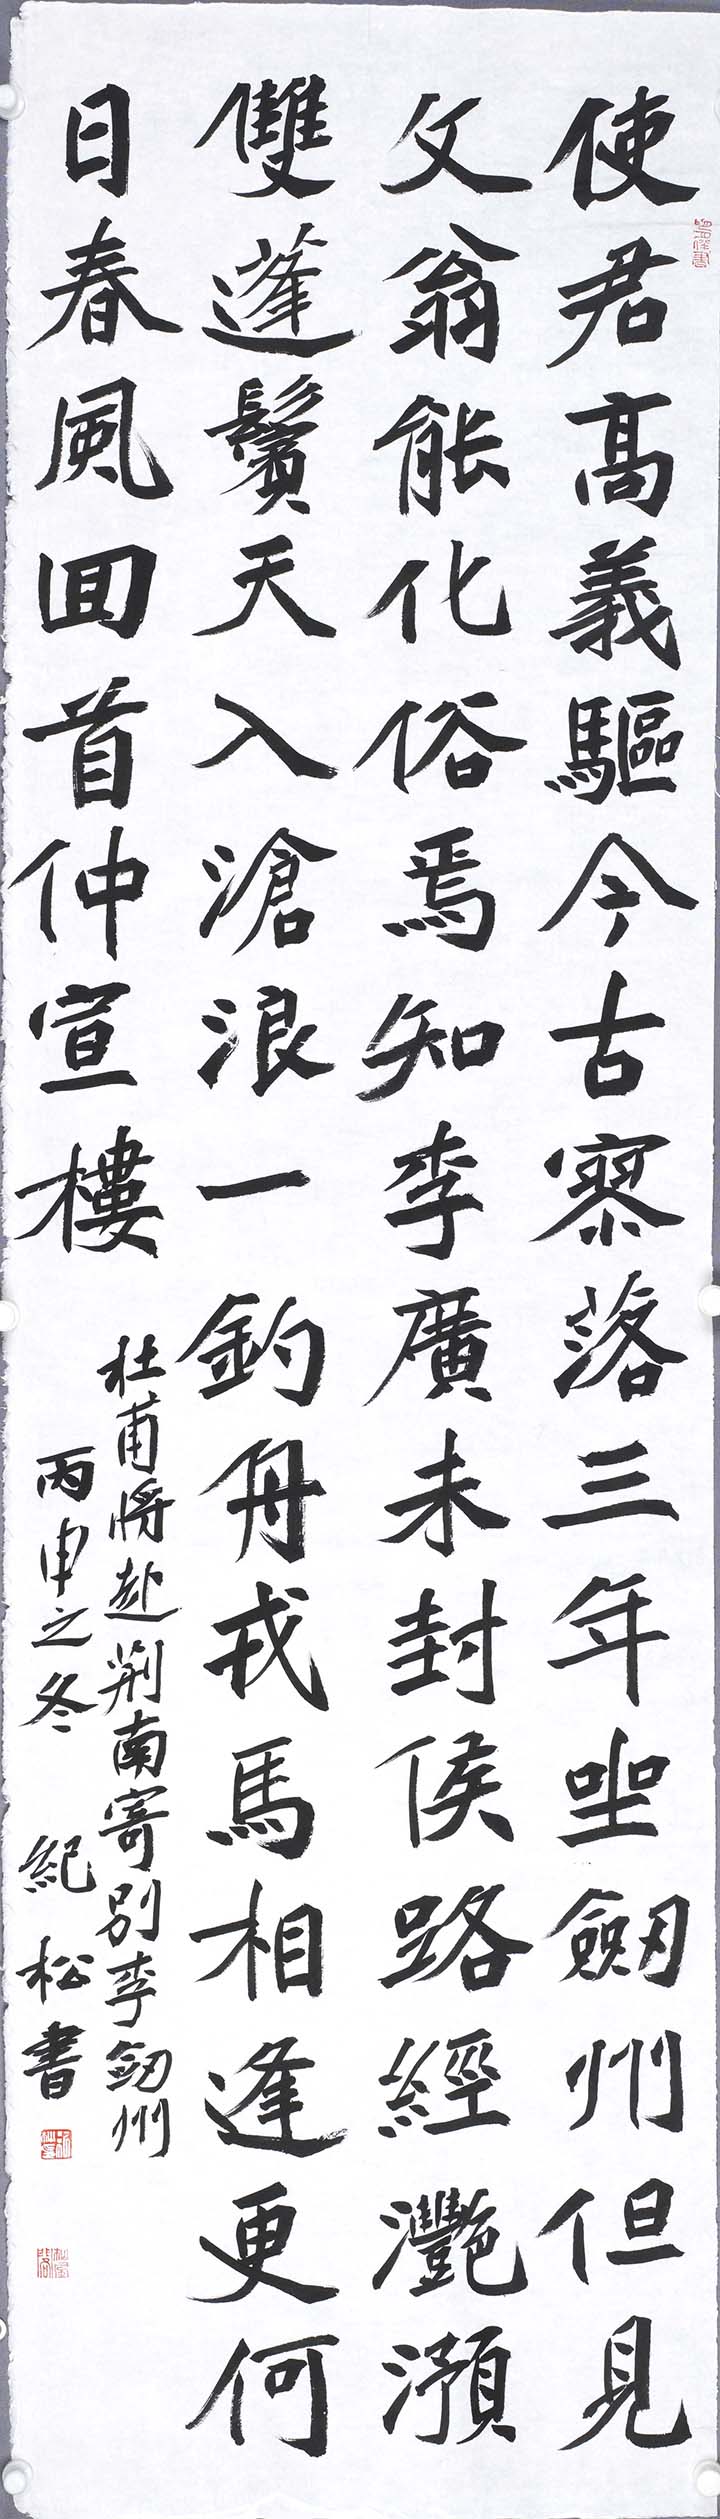 使君高義驅今古寥落三年坐劒州但見
文翁能化俗焉知李廣未封侯路經灩澦
雙蓬鬢天入滄浪一釣舟戎馬相逢更何
日春風囬首仲宣樓
杜甫將赴荆南寄別李釼州
丙申之冬 紀松書